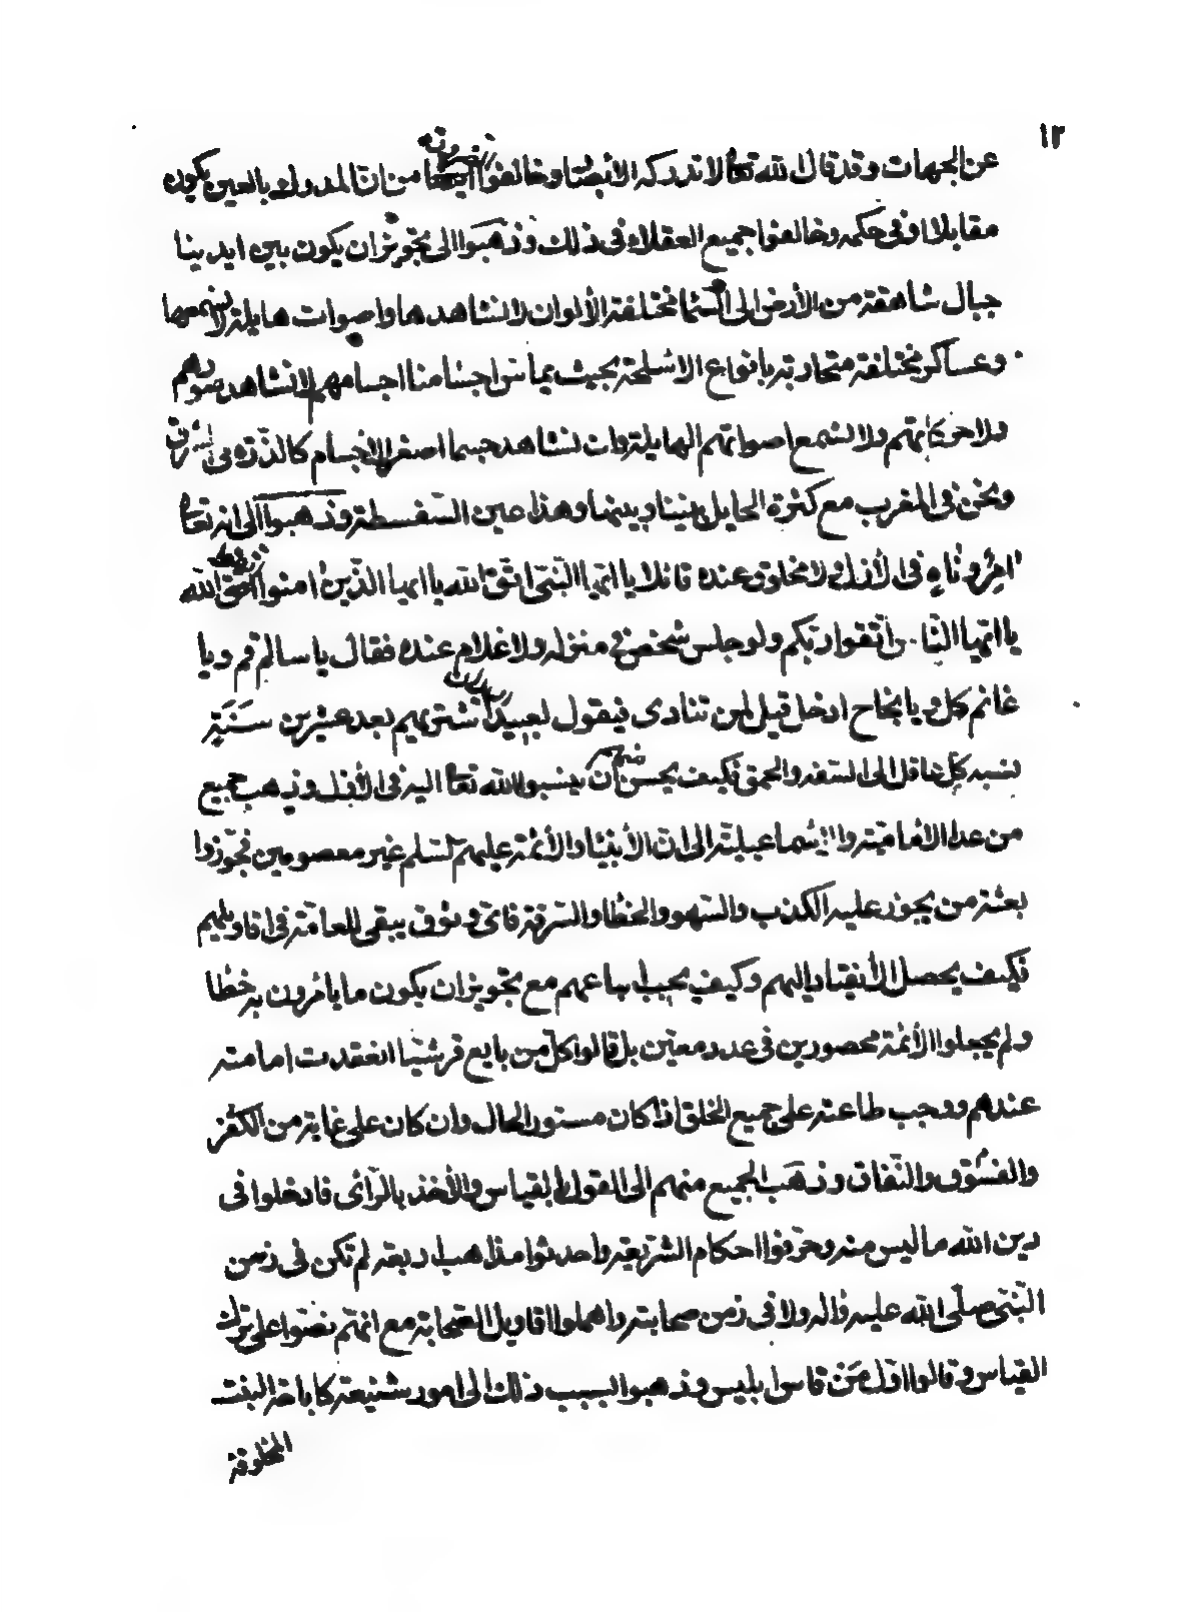 ١٢
عن الجهات وقد قال الله تعالى لا تدركه الأبصار وخالفوا الضرورة من ان المدرك بالعين يكون
مقابلا او فى حكمه وخالفوا جميع العقلاء فى ذلك وذهبوا الى تجويز ان يكون بين ايدينا
جبال شاهقة من الأرض الى السماء مختلفة الألوان لا نشاهدها واصوات هايلة لا نسمعها
وعساكر مختلفة متحاربة بانواع الاسلحة بحيث يماس اجسامنا اجسامهم لا نشاهد صورهم
ولا حركاتهم ولا نسمع اصواتهم الهايلة وان نشاهد جسما اصغر الاجسام كالذرة فى المشرق
ونحن فى المغرب مع كثرة الحايل بيننا وبينها وهذا عين السفسطة وذهبوا الى انه تعالى
امر وناه فى الأزل ولا مخلوق عنده قائلا يا ايها النبى اتق الله يا ايها الذين امنوا اتقوا الله
يا ايها الناس اتقوا ربكم ولو جلس شخص فى منزله ولا غلام عنده فقال يا سالم قم ويا
غانم كل ويا نجاح ادخل قيل لمن تنادى فيقول لعبيد اشتريهم بعد عشرين سنة
نسبه كل عاقل الى السفه والحمق فكيف يحسن منهم ان ينسبوا الله تعالى اليه فى الأزل وذهب جميع
من عدا الامامية والاسماعيلية الى ان الأنبياء والأئمة عليهم السلم غير معصومين فجوزوا
بعثة من يجوز عليه الكذب والسهو والخطا والسرقة فاى وثوق يبقى للعامة فى اقاويلهم
فكيف يحصل الأنقياد اليهم وكيف يجب اتباعهم مع تجويز ان يكون ما يامرون به خطا
ولم يجعلوا الأئمة محصورين فى عدد معين بل قالوا كل من بايع قرشيا انعقدت امامته
عندهم ووجب طاعته على جميع الخلق اذا كان مستور الحال وان كان على غاية من الكفر
والفسوق والنفاق وذهب الجميع منهم الى القول بالقياس والأخذ بالرأى فادخلوا فى
دين الله ما ليس منه وحرفوا احكام الشريعة واحدثوا مذاهب اربعة لم تكن فى زمن
النبى صلى الله عليه واله ولا فى زمن صحابته واهملوا اقاويل الصحابة مع انهم نصوا على ترك
القياس وقالوا اول من قاس ابليس وذهبوا بسبب ذلك الى امور شنيعة كاباحة البنت
المخلوقة